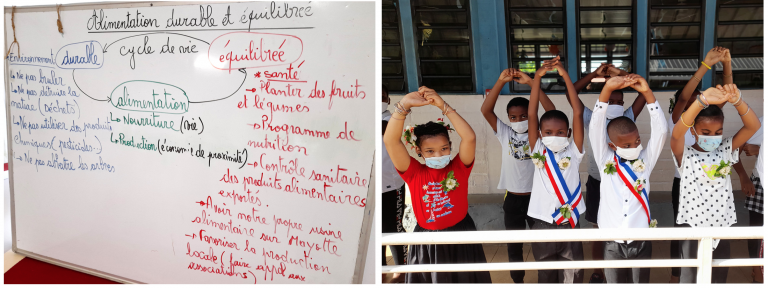 Alimentation durable et équilibrée
Environnement
durable
cycle de vie
équilibrée
↳ Ne pas brûler
↳ Ne pas détruire la
(déchets)
↳ Ne pas utiliser des produits
chimiques (pesticides)
↳ Ne pas abattre les arbres
alimentation
↳ Nourriture
↳ Production (économie de proximité)
* santé
→ Planter des fruits
et légumes
→ Programme de
nutrition
→ Contrôle sanitaire
des produits alimentaires
exportés
→ Avoir notre propre usine
alimentaire sur Mayotte
→ Favoriser la production
locale (faire appel aux
associations)